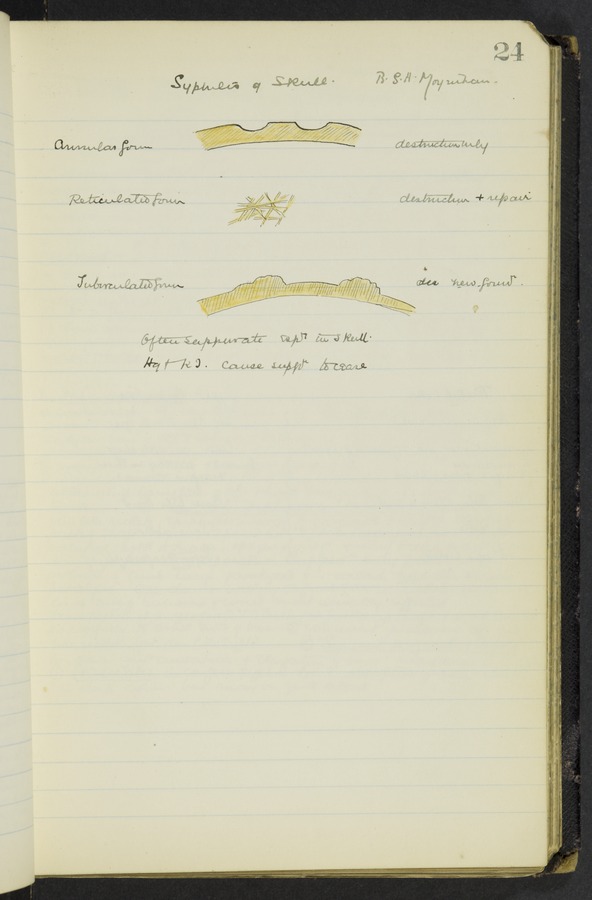 24
Syphilis of Skull. B. G. A. Moynihan.
Annular form destruction only
Reticulated form destruction + repair
Tuberculated form new form
Often suppurate skull.
Hg + KI. cause supptn to cease